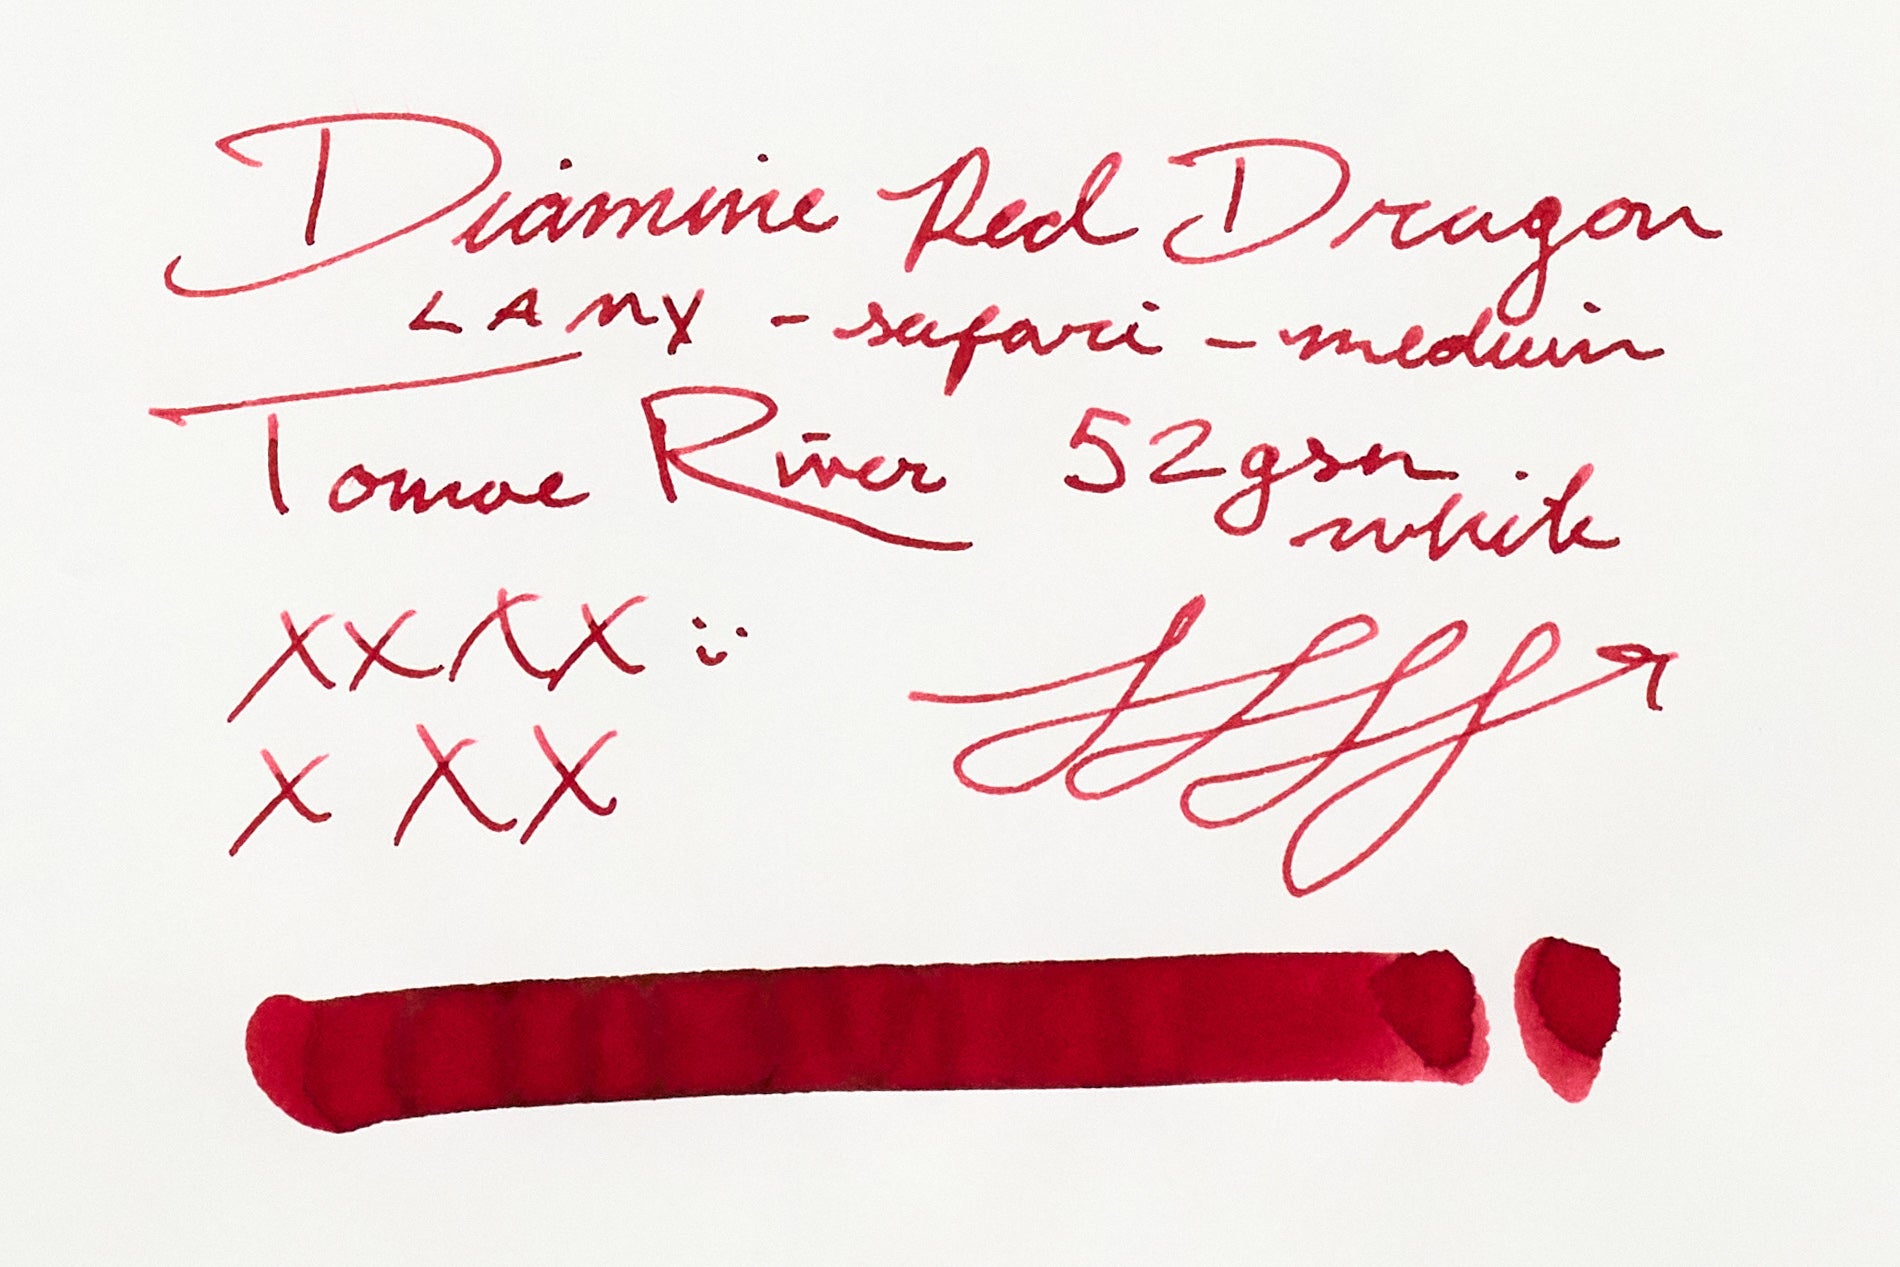 Diamine Red Dragon
LAMY - safari - medium
Tomoe River 52gsm
white
xxxx :)
x x x